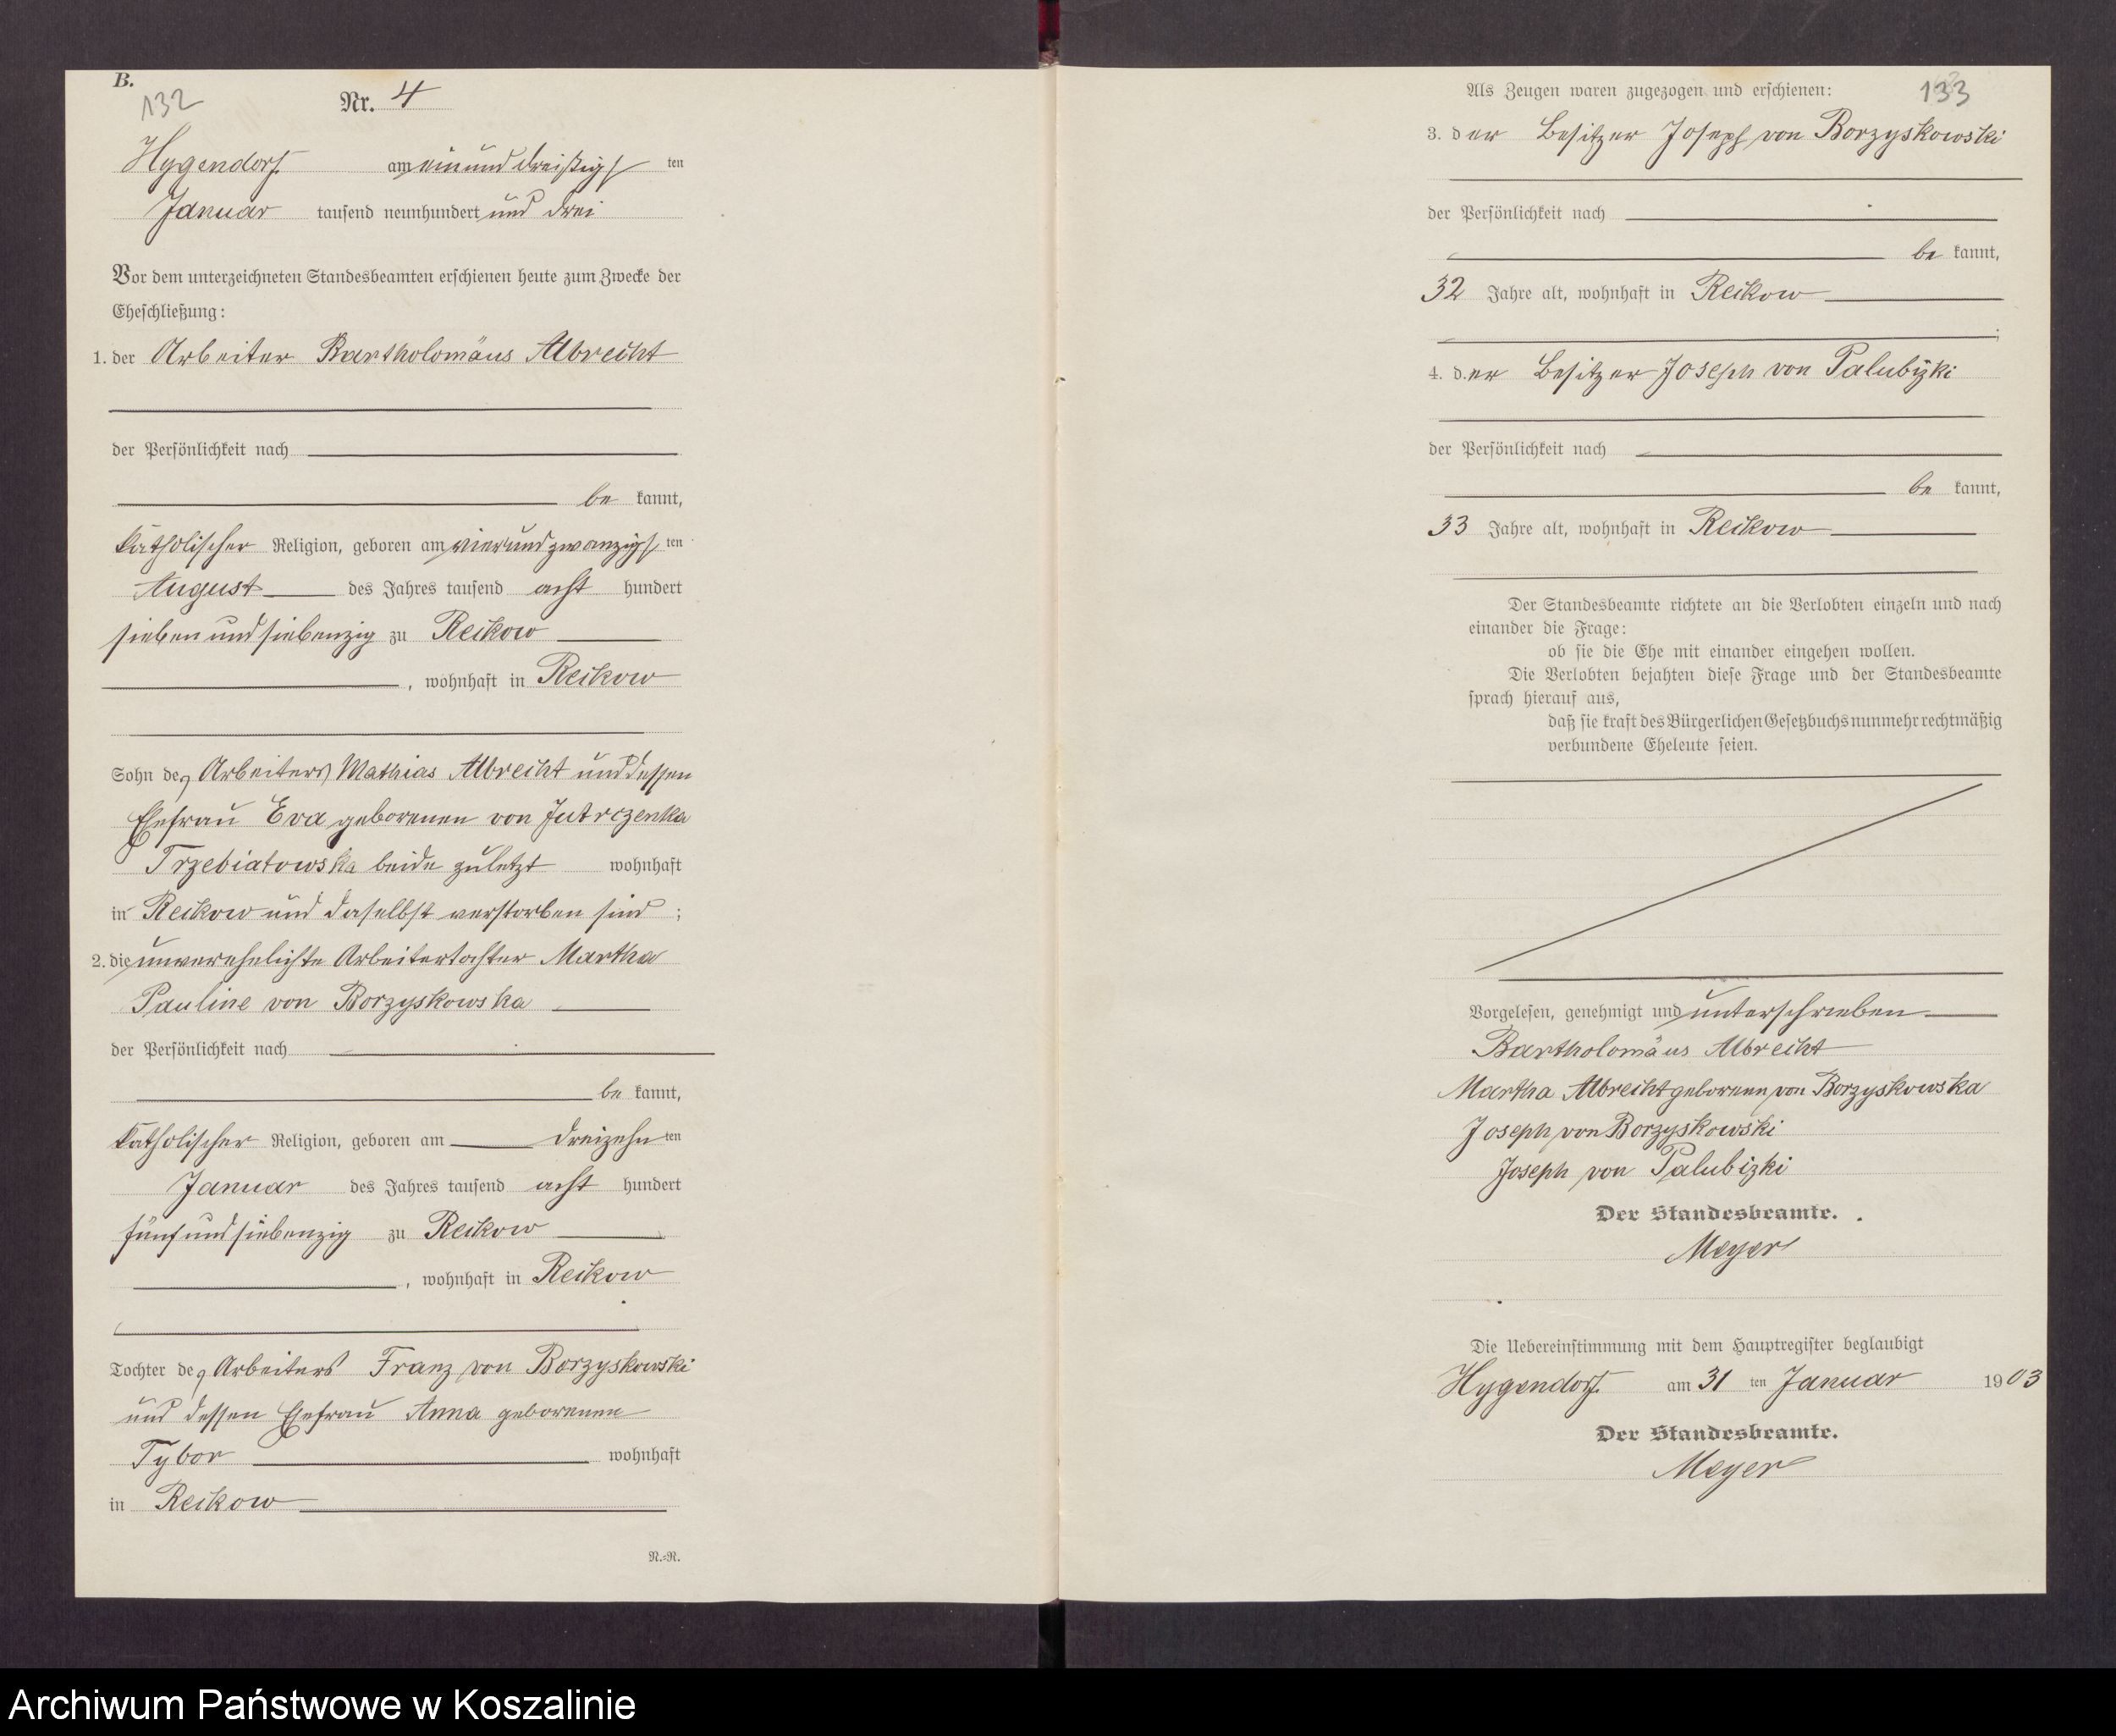 B.
132
Nr. 4
Hygendorf am einunddreißigsten
Januar tausend neunhundert und drei
Vor dem unterzeichneten Standesbeamten erschienen heute zum Zwecke der
Eheschließung:
1. der Arbeiter Bartholomäus Albrecht
der Persönlichkeit nach
be kannt,
katholischer Religion, geboren am vierundzwanzigsten
August des Jahres tausend acht hundert
siebenundsiebenzig zu Reikow
, wohnhaft in Reikow
Sohn des Arbeiters Mathias Albrecht und dessen
Ehefrau Eva geborenen von Jutrczenka
Trzebiatowska beide zuletzt wohnhaft
in Reikow und daselbst verstorben sind ;
2. die unverehelichte Arbeitertochter Martha
Pauline von Borzyskowska
der Persönlichkeit nach
be kannt,
katholischer Religion, geboren am dreizehnten
Januar des Jahres tausend acht hundert
fünfundsiebenzig zu Reikow
, wohnhaft in Reikow
Tochter des Arbeiters Franz von Borzyskowski
und dessen Ehefrau Anna geborenen
Tybor wohnhaft
in Reikow
N.=N.
Als Zeugen waren zugezogen und erschienen:
133
3. der Besitzer Joseph von Borzyskowski
der Persönlichkeit nach
be kannt,
32 Jahre alt, wohnhaft in Reikow
;
4. der Besitzer Joseph von Palubizki
der Persönlichkeit nach
be kannt,
33 Jahre alt, wohnhaft in Reikow
Der Standesbeamte richtete an die Verlobten einzeln und nach
einander die Frage:
ob sie die Ehe mit einander eingehen wollen.
Die Verlobten bejahten diese Frage und der Standesbeamte
sprach hierauf aus,
daß sie kraft des Bürgerlichen Gesetzbuchs nunmehr rechtmäßig
verbundene Eheleute seien.
Vorgelesen, genehmigt und unterschrieben
Bartholomäus Albrecht
Martha Albrecht geborene von Borzyskowska
Joseph von Borzyskowski
Joseph von Palubizki
Der Standesbeamte.
Meyer
Die Uebereinstimmung mit dem Hauptregister beglaubigt
Hygendorf am 31 ten Januar 1903
Der Standesbeamte.
Meyer
Archiwum Państwowe w Koszalinie